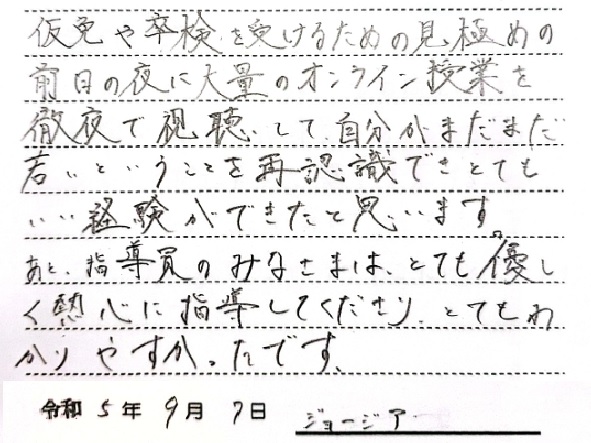 仮免や卒検を受けるための見極めの
前日の夜に大量のオンライン授業を
徹夜で視聴して、自分がまだまだ
若いということを再認識できとても
いい経験ができたと思います。
あと、指導員のみなさまは、とても優し
く熱心に指導してくださり、とてもわ
かりやすかったです。
令和 5年 9月 7日 ジョージア